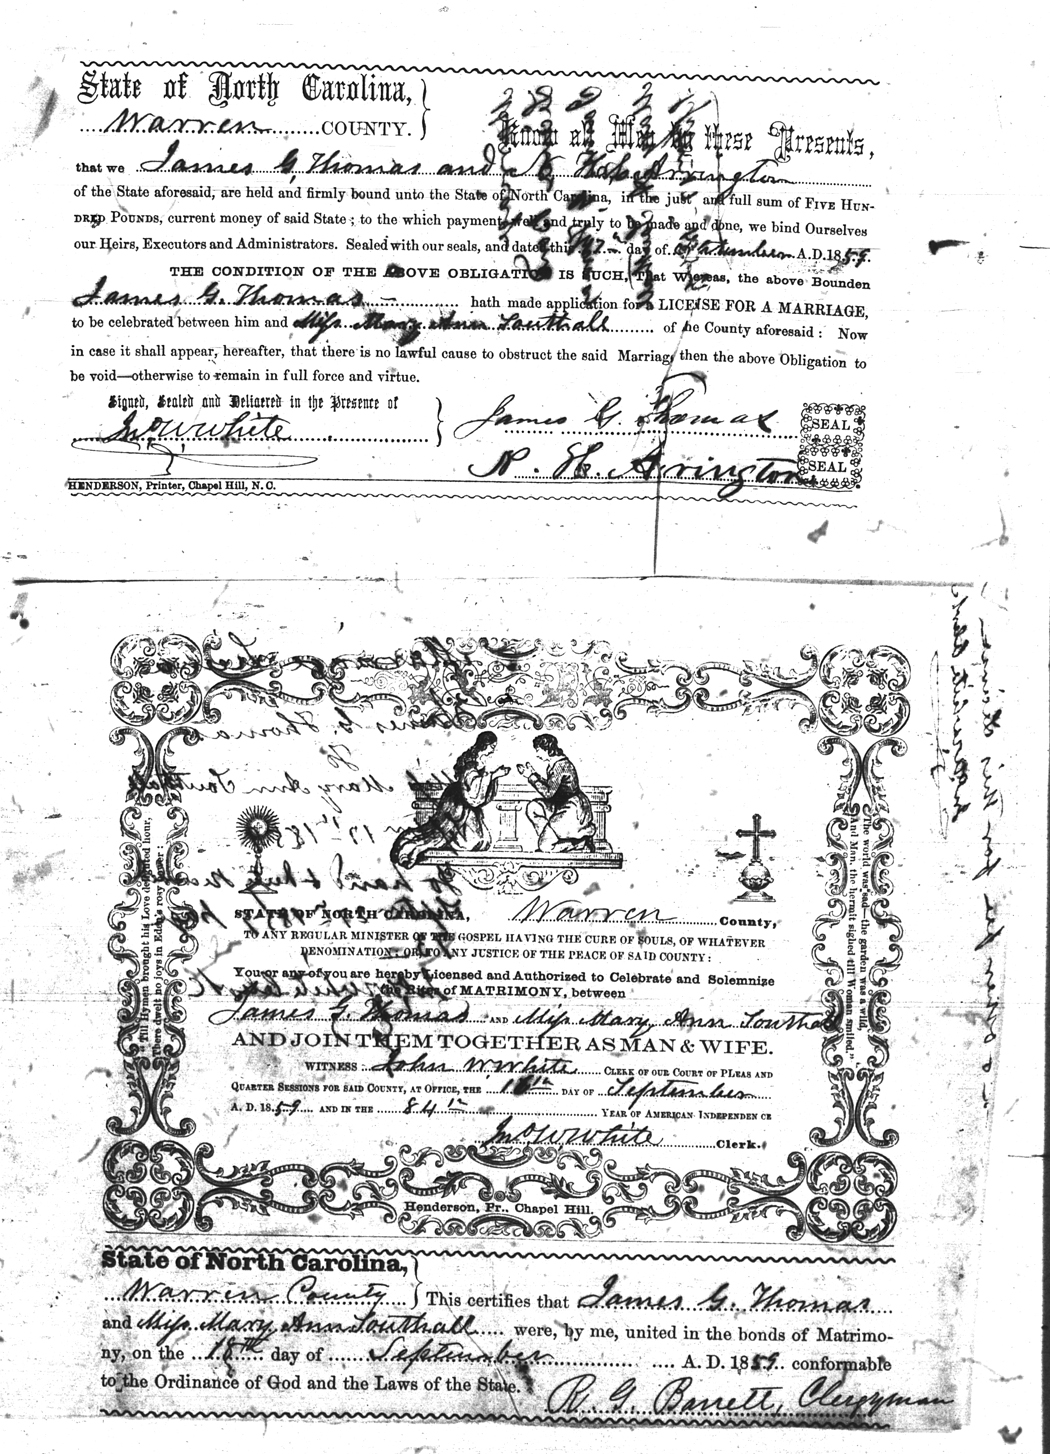 State of North Carolina,
Warren COUNTY.
Know all Men by these Presents,
that we James G. Thomas and N. H. Arrington
of the State aforesaid, are held and firmly bound unto the State of North Carolina, in the just and full sum of FIVE HUN-
DRED POUNDS, current money of said State; to the which payment, well and truly to be made and done, we bind Ourselves
our Heirs, Executors and Administrators. Sealed with our seals, and dated this 17 day of September A.D. 1859.
THE CONDITION OF THE ABOVE OBLIGATION IS SUCH, That Whereas, the above Bounden
James G. Thomas hath made application for a LICENSE FOR A MARRIAGE,
to be celebrated between him and Miss Mary Ann Southall of the County aforesaid: Now
in case it shall appear, hereafter, that there is no lawful cause to obstruct the said Marriag, then the above Obligation to
be void—otherwise to remain in full force and virtue.
Signed, Sealed and Delivered in the Presence of
Jno W White
James G. Thomas SEAL
N. H. Arrington SEAL
HENDERSON, Printer, Chapel Hill, N. C.
"Till Hymen brought his Love delighted hour,
There dwelt no joys in Eden's rosy bower:
The world was sad—the garden was a wild,
And Man, the hermit sighed till Woman smiled."
STATE OF NORTH CAROLINA, Warren County,
TO ANY REGULAR MINISTER OF THE GOSPEL HAVING THE CURE OF SOULS, OF WHATEVER
DENOMINATION; OR TO ANY JUSTICE OF THE PEACE OF SAID COUNTY:
You or any of you are hereby Licensed and Authorized to Celebrate and Solemnize
the Rites of MATRIMONY, between
James G. Thomas AND Miss Mary Ann Southall
AND JOIN THEM TOGETHER AS MAN & WIFE.
WITNESS John W. White CLERK OF OUR COURT OF PLEAS AND
QUARTER SESSIONS FOR SAID COUNTY, AT OFFICE, THE DAY OF September
A. D. 1859 AND IN THE 84th YEAR OF AMERICAN INDEPENDENCE
Jno W White Clerk.
Henderson, Pr., Chapel Hill.
State of North Carolina,
Warren County This certifies that James G. Thomas
and Miss Mary Ann Southall were, by me, united in the bonds of Matrimo-
ny, on the 18th day of September A. D. 1859 conformable
to the Ordinance of God and the Laws of the State.
R. G. Barrett, Clergyman